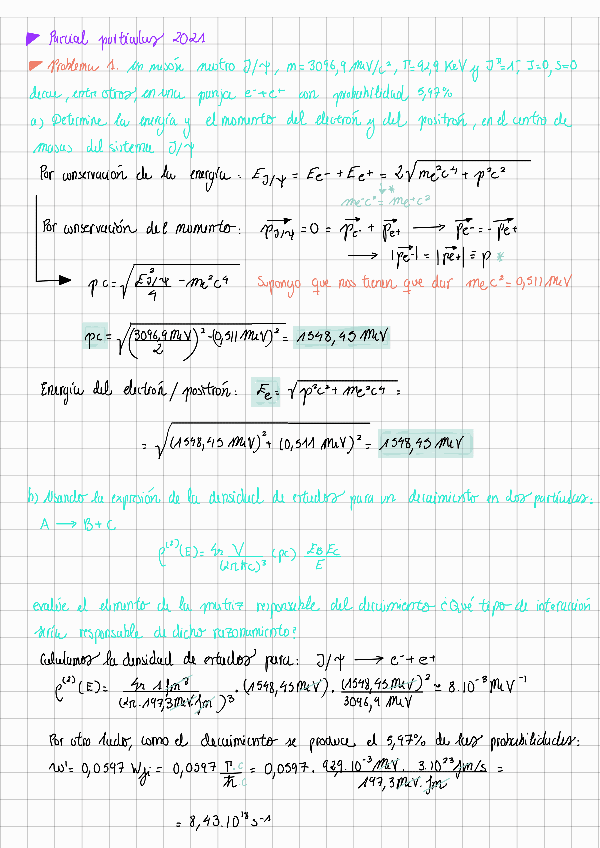 ▶ Parcial partículas 2021
▶ Problema 1. Un mesón neutro J/ψ, m = 3096,9 MeV/c², Γ = 92,9 KeV y J^π = 1⁻, I=0, S=0
decae, entre otros, en una pareja e⁻+e⁺ con probabilidad 5,97%
a) Determine la energía y el momento del electrón y del positrón, en el centro de
masas del sistema J/ψ
Por conservación de la energía: E_J/ψ = Ee⁻ + Ee⁺ = 2√(me²c⁴ + p²c²)
me⁻c² = me⁺c² *
Por conservación del momento: p⃗_J/ψ = 0 = p⃗e⁻ + p⃗e⁺ → p⃗e⁻ = -p⃗e⁺
→ |p⃗e⁻| = |p⃗e⁺| ≡ p *
pc = √(E²_J/ψ / 4 - me²c⁴) Supongo que nos tienen que dar mec² = 0,511 MeV
pc = √((3096,9 MeV / 2)² - (0,511 MeV)²) = 1548,45 MeV
Energía del electrón / positrón: Ee = √(p²c² + me²c⁴) =
= √((1548,45 MeV)² + (0,511 MeV)²) = 1548,45 MeV
b) Usando la expresión de la densidad de estados para un decaimiento en dos partículas:
A → B + C
ρ⁽²⁾(E) = 4π V / (2πħc)³ (pc) EB EC / E
evalúe el elemento de la matriz responsable del decaimiento ¿Qué tipo de interacción
sería responsable de dicho razonamiento?
Calculamos la densidad de estados para: J/ψ → e⁻ + e⁺
ρ⁽²⁾(E) = 4π 1 fm³ / (2π · 197,3 MeV · fm)³ · (1548,45 MeV) · (1548,45 MeV)² / 3096,9 MeV ≃ 8·10⁻³ MeV⁻¹
Por otro lado, como el decaimiento se produce el 5,97% de las probabilidades:
w' = 0,0597 Wji = 0,0597 Γ·c / ħ·c = 0,0597 · 92,9·10⁻³ MeV · 3·10²³ fm/s / 197,3 MeV · fm =
= 8,43·10¹⁸ s⁻¹